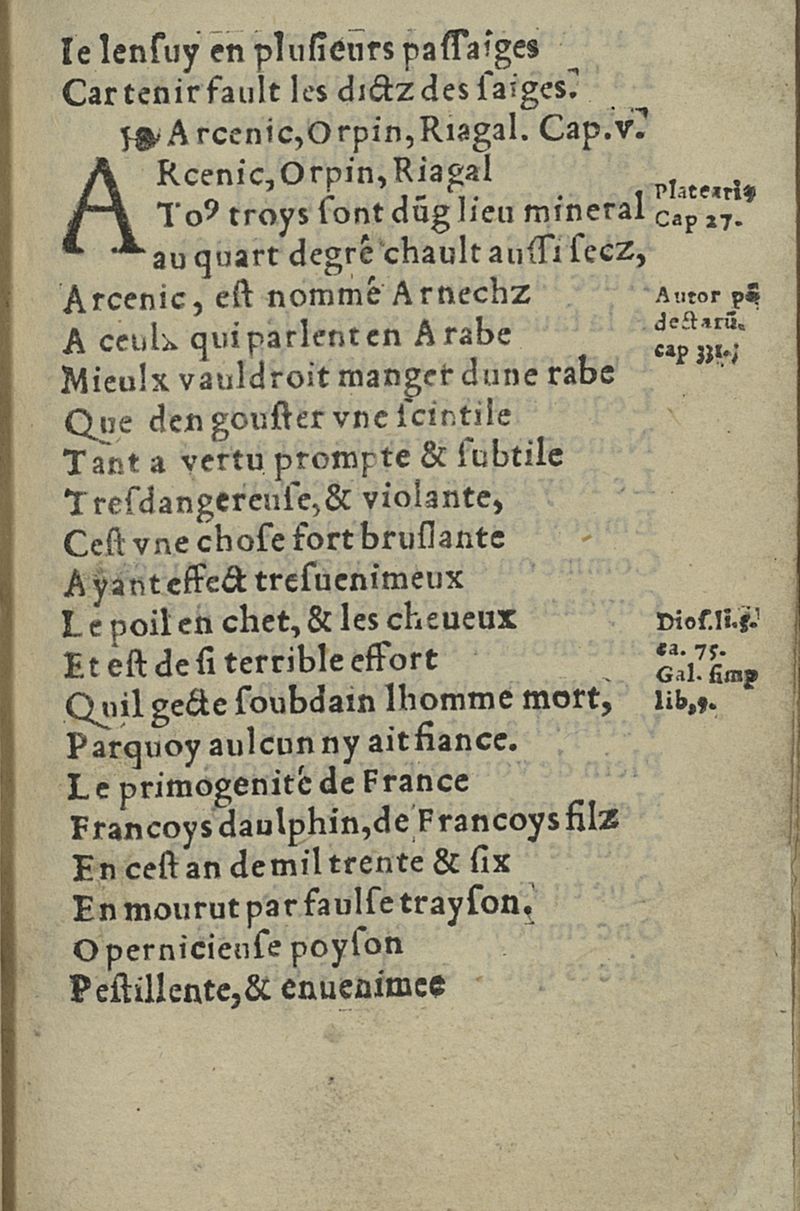 Ie lenſuy en pluſieurs paſſaiges
Car tenir fault les dictz des ſaiges.
Arcenic, Orpin, Riagal. Cap. v.
ARcenic, Orpin, Riagal
Toꝰ troys ſont dũg lieu mineral
au quart degrê chault auſſi ſecz,
Arcenic, eſt nommê Arnechz
A ceulx qui parlent en Arabe
Mieulx vauldroit manger dune rabe
Que den gouſter vne ſcintile
Tant a vertu prompte & ſubtile
Treſdangereuſe, & violante,
Ceſt vne choſe fort bruſlante
Ayant effect treſuenimeux
Le poil en chet, & les cheueux
Et eſt de ſi terrible effort
Quil gecte ſoubdain lhomme mort,
Parquoy aulcun ny ait fiance.
Le primogenitê de France
Francoys daulphin, de Francoys filz
En ceſt an de mil trente & ſix
En mourut par faulſe trayſon.
O pernicieuſe poyſon
Peſtillente, & enuenimee
Plateariꝰ
Cap 27.
Autor
cap
Dioſ. li. 5.
ca. 75.
Gal. ſimp
lib, 9.